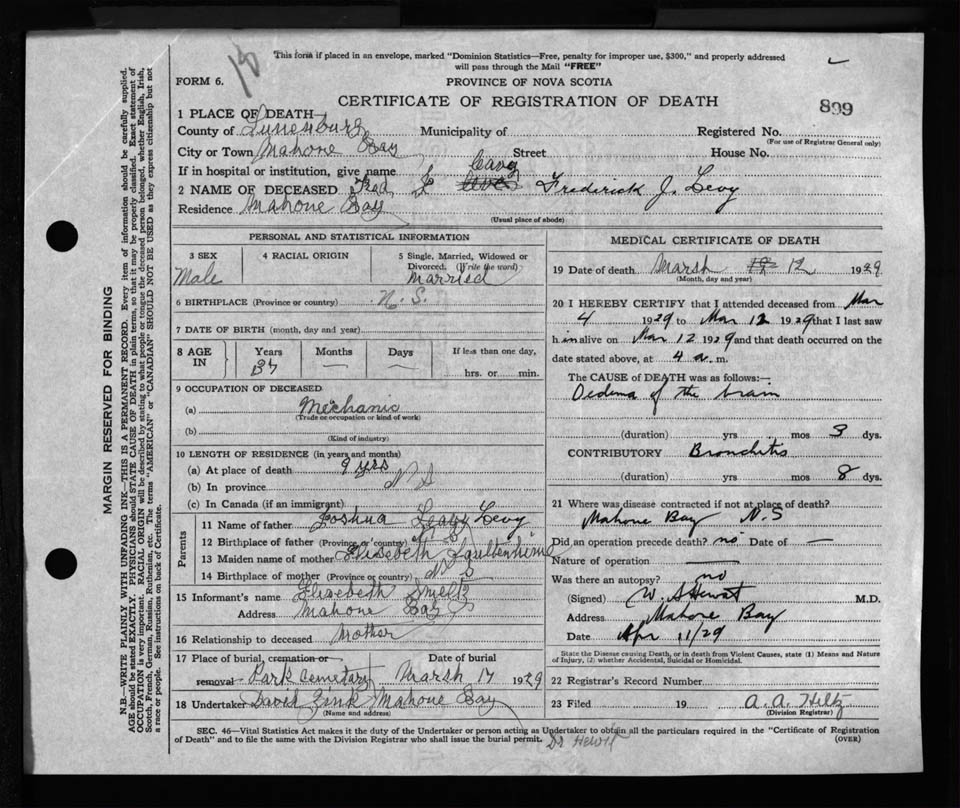 This form if placed in an envelope, marked "Dominion Statistics—Free, penalty for improper use, $300," and properly addressed
will pass through the Mail "FREE"
18
FORM 6.
PROVINCE OF NOVA SCOTIA
CERTIFICATE OF REGISTRATION OF DEATH
899
1 PLACE OF DEATH—
County of Lunenburg Municipality of Registered No.
(For use of Registrar General only)
City or Town Mahone Bay Street House No.
If in hospital or institution, give name
2 NAME OF DECEASED Fred J Leavy Frederick J. Levy
Residence Mahone Bay
(Usual place of abode)
PERSONAL AND STATISTICAL INFORMATION
3 SEX 4 RACIAL ORIGIN 5 Single, Married, Widowed or
Divorced. (Write the word)
Male Married
6 BIRTHPLACE (Province or country) N. S.
7 DATE OF BIRTH (month, day and year)
8 AGE IN Years Months Days If less than one day,
— — hrs. or min.
9 OCCUPATION OF DECEASED
(a) Mechanic
(Trade or occupation or kind of work)
(b)
(Kind of industry)
10 LENGTH OF RESIDENCE (in years and months)
(a) At place of death 9 yrs
(b) In province N S
(c) In Canada (if an immigrant)
Parents
11 Name of father Joshua Leavy Levy
12 Birthplace of father (Province or country) N S
13 Maiden name of mother Elisebeth
14 Birthplace of mother (Province or country) N S
15 Informant's name Elisebeth Smeltz
Address Mahone Bay
16 Relationship to deceased Mother
17 Place of burial, cremation or Date of burial
removal Park Cemetary Marsh 17 1929
18 Undertaker David Zink Mahone Bay
(Name and address)
MEDICAL CERTIFICATE OF DEATH
19 Date of death Marsh 12 1929
(Month, day and year)
20 I HEREBY CERTIFY that I attended deceased from Mar
4 1929 to Mar 12 1929 that I last saw
h im alive on Mar 12 1929 and that death occurred on the
date stated above, at 4 a. m.
The CAUSE of DEATH was as follows:—
Oedema of the brain
(duration) yrs mos 3 dys.
CONTRIBUTORY Bronchitis
(duration) yrs mos 8 dys.
21 Where was disease contracted if not at place of death?
Mahone Bay N.S
Did an operation precede death? no Date of —
Nature of operation —
Was there an autopsy? no
(Signed) W. A Hewat M.D.
Address Mahone Bay
Date Apr 11/29
State the Disease causing Death, or in death from Violent Causes, state (1) Means and Nature
of Injury, (2) whether Accidental, Suicidal or Homicidal.
22 Registrar's Record Number
23 Filed 19 A. A. Hiltz
(Division Registrar)
SEC. 46—Vital Statistics Act makes it the duty of the Undertaker or person acting as Undertaker to obtain all the particulars required in the "Certificate of Registration
of Death" and to file the same with the Division Registrar who shall issue the burial permit.
(OVER)
MARGIN RESERVED FOR BINDING
N.B.—WRITE PLAINLY WITH UNFADING INK—THIS IS A PERMANENT RECORD. Every item of information should be carefully supplied.
AGE should be stated EXACTLY. PHYSICIANS should STATE CAUSE OF DEATH in plain terms, so that it may be properly classified. Exact statement of
OCCUPATION is very important. RACIAL ORIGIN will be described by stating to what people or tongue the deceased person belonged, whether English, Irish,
Scotch, French, German, Russian, Ruthenian, etc. The terms "AMERICAN" or "CANADIAN" SHOULD NOT BE USED as they express citizenship but not
a race or people. See instructions on back of Certificate.